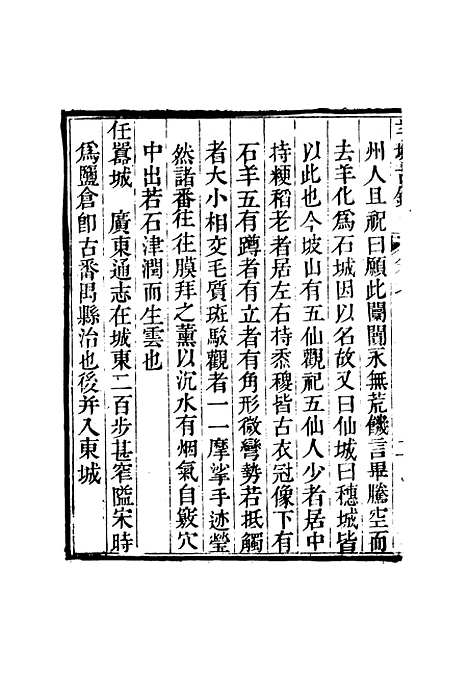 州人且祝曰願此闤闠永無荒饑言畢騰空而
去羊化爲石城因以名故又曰仙城曰穗城皆
以此也今坡山有五仙觀祀五仙人少者居中
持粳稻老者居左右持黍稷皆古衣冠像下有
石羊五有蹲者有立者有角形微彎勢若抵觸
者大小相交毛質斑駁觀者一一摩挲手迹瑩
然諸番往往膜拜之薰以沉水有烟氣自竅穴
中出若石津潤而生雲也
任囂城　廣東通志在城東二百步甚窄隘宋時
爲鹽倉卽古番禺縣治也後并入東城